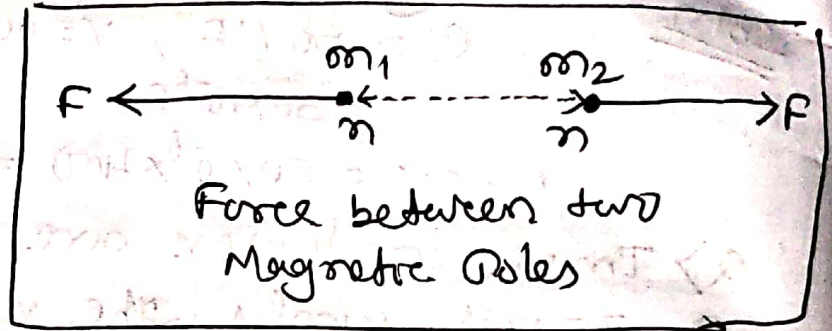 m1 m2
F F
n n
Force between two
Magnetic Poles